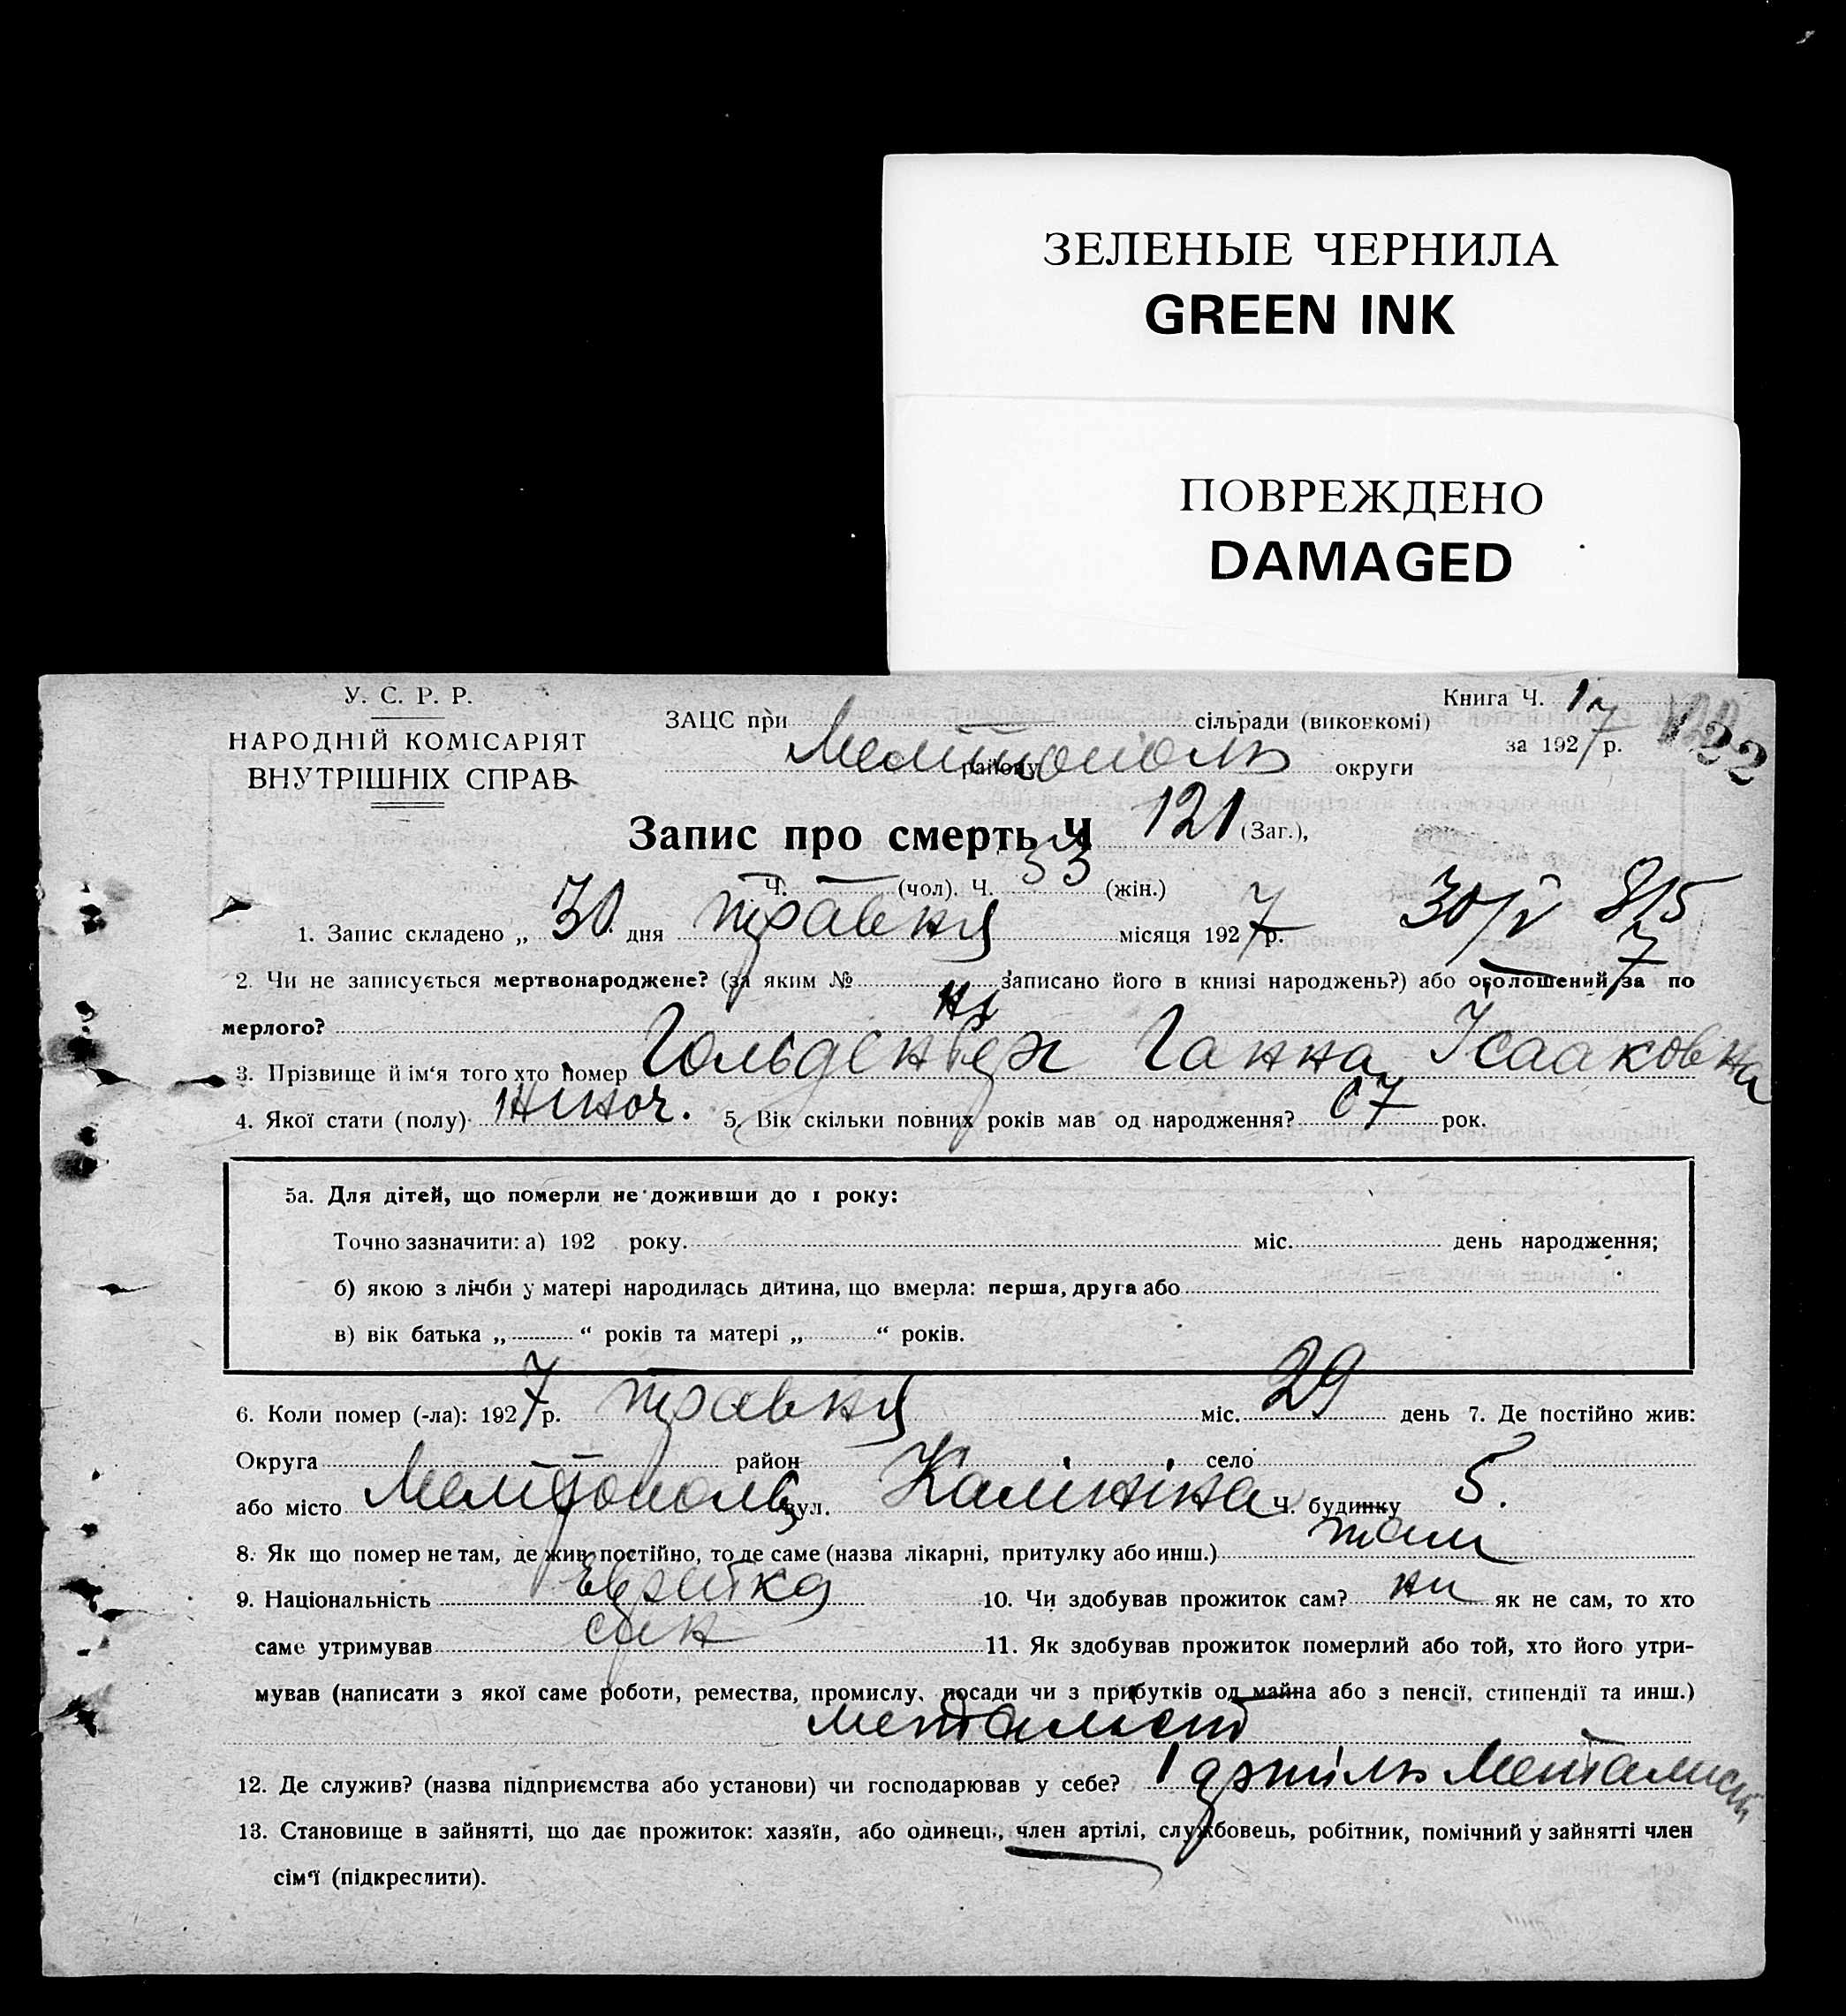 ЗЕЛЕНЫЕ ЧЕРНИЛА
GREEN INK
ПОВРЕЖДЕНО
DAMAGED
У. С. Р. Р.
НАРОДНІЙ КОМІСАРІЯТ
ВНУТРІШНІХ СПРАВ
ЗАЦС при сільради (виконкомі)
Мелітополь району округи
Книга Ч. 1
за 1927 р.
122
Запис про смерть Ч 121 (Заг.),
Ч. — (чол). Ч. 33 (жін.)
1. Запис складено „ 30 дня травня місяця 1927 р.
30/V 815
7
2. Чи не записується мертвонароджене? (за яким № записано його в книзі народжень?) або оголошений за по
мерлого? ні
3. Прізвище й ім'я того хто помер Гольденберг Ганна Ісааковна
4. Якої стати (полу) жіноч. 5. Вік скільки повних років мав од народження? 67 рок.
5а. Для дітей, що померли не доживши до 1 року:
Точно зазначити: а) 192 року. міс. день народження;
б) якою з лічби у матері народилась дитина, що вмерла: перша, друга або
в) вік батька „ “ років та матері „ “ років.
6. Коли помер (-ла): 1927 р. травня міс. 29 день 7. Де постійно жив:
Округа район село
або місто Мелітополь вул. Калініна Ч. будинку 5.
8. Як що помер не там, де жив постійно, то де саме (назва лікарні, притулку або инш.) там
9. Національність Еврейка 10. Чи здобував прожиток сам? ни як не сам, то хто
саме утримував син 11. Як здобував прожиток померлий або той, хто його утри-
мував (написати з якої саме роботи, ремества, промислу, посади чи з прибутків од майна або з пенсії, стипендії та инш.)
металист
12. Де служив? (назва підприємства або установи) чи господарював у себе? 1 артіль Металист
13. Становище в зайнятті, що дає прожиток: хазяїн, або одинець, член артілі, службовець, робітник, помічний у зайнятті член
сім'ї (підкреслити).